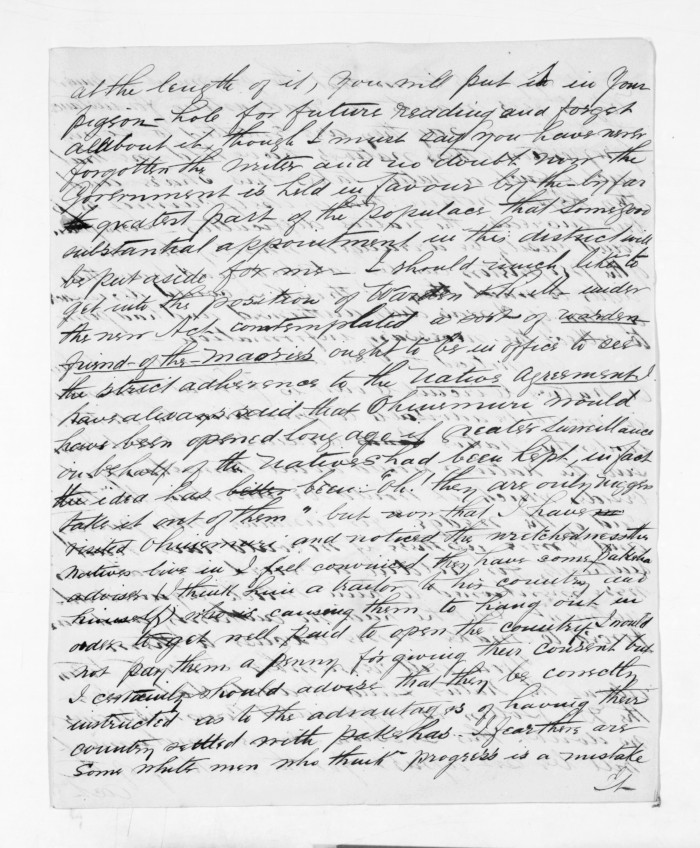 at the length of it, You will put it in Your
pigeon-hole for future reading and forget
all about it, though I must say you have never
forgotten the writer and no doubt now the
Government is held in favour by the by far
greatest part of the populace that some good
substantial appointment in this district will
be put aside for me - I should much like to
get into the position of Warden under
the new Act contemplated a sort of warden
friend-of-the-maories ought to be in office to see
the strict adherence to the Native Agreement I
have always said that Ohinemuri would
have been opened long ago if greater surveillance
on behalf of the Natives had been kept, in fact
the idea has been "Oh! they are only niggers
take it out of them" but now that I have
visited Ohinemuri and noticed the wretchedness the
Natives live in I feel convinced they have some Pakeha
adviser (I think him a traitor to his country and
himself) who is causing them to hang out in
order to get well paid to open the country. I would
not pay them a penny for giving their consent but
I certainly should advise that they be correctly
instructed as to the advantages of having their
country settled with pakehas. I fear there are
some white men who think progress is a mistake